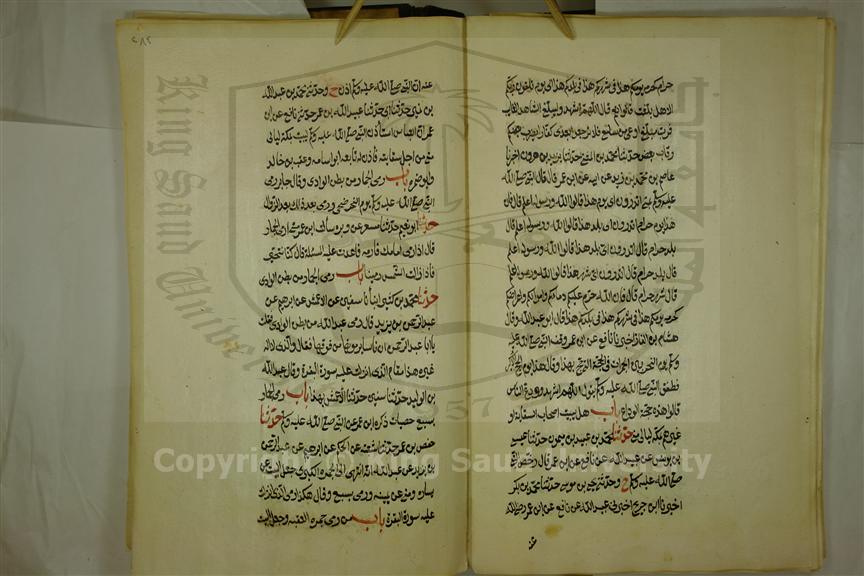 حرام كحرمة يومكم هذا في شهركم هذا في بلدكم هذا الى يوم تلقون ربكم
الا هل بلغت قالوا نعم قال اللهم اشهد وليبلغ الشاهد الغائب
فرب مبلغ اوعى من سامع فلا ترجعوا بعدي كفارا يضرب بعضكم
رقاب بعض حدثنا محمد بن المثنى حدثنا يزيد بن هرون اخبرنا
عاصم بن محمد بن زيد عن ابيه عن ابن عمر قال قال النبي صلى الله
عليه وسلم بمنى اتدرون اي يوم هذا قالوا الله ورسوله اعلم قال فان
هذا يوم حرام قال اتدرون اي بلد هذا قالوا الله ورسوله اعلم قال
بلد حرام قال اتدرون اي شهر هذا قالوا الله ورسوله اعلم
قال شهر حرام قال فان الله حرم عليكم دماءكم واموالكم واعراضكم
كحرمة يومكم هذا في شهركم هذا في بلدكم هذا قال ابو عبد الله وقال
هشام بن الغاز اخبرني نافع عن ابن عمر وقف النبي صلى الله عليه
وسلم يوم النحر بين الجمرات في الحجة التي حج بهذا وقال هذا يوم الحج الاكبر
فطفق النبي صلى الله عليه وسلم يقول اللهم اشهد وودع الناس
فقالوا هذه حجة الوداع باب هل يبيت اصحاب السقاية او
غيرهم بمكة ليالي منى حدثنا محمد بن عبيد بن ميمون حدثنا عيسى
بن يونس عن عبيد الله عن نافع عن ابن عمر قال رخص النبي
صلى الله عليه وسلم ح وحدثنا يحيى بن موسى حدثنا محمد بن بكر
اخبرنا ابن جريج اخبرني عبيد الله عن نافع عن ابن عمر رضي الله
عنه
عنه ان النبي صلى الله عليه وسلم اذن ح وحدثنا محمد بن عبد الله
بن نمير حدثنا ابي حدثنا عبيد الله بن عمر حدثني نافع عن ابن
عمر ان العباس استأذن النبي صلى الله عليه وسلم ليبيت بمكة ليالي
منى من اجل سقايته فأذن له تابعه ابو اسامة وعقبة بن خالد
وابو ضمرة باب رمي الجمار من بطن الوادي وقال جابر رمى
النبي صلى الله عليه وسلم يوم النحر ضحى ورمى بعد ذلك بعد الزوال
حدثنا ابو نعيم حدثنا مسعر عن وبرة سألت ابن عمر متى ارمي الجمار
قال اذا رمى امامك فارمه فاعدت عليه المسئلة قال كنا نتحين
فاذا زالت الشمس رمينا باب رمي الجمار من بطن الوادي
حدثنا محمد بن كثير انبأنا سفيان عن الاعمش عن ابرهيم عن
عبد الرحمن بن يزيد قال رمى عبد الله من بطن الوادي فقلت
يا ابا عبد الرحمن ان ناسا يرمونها من فوقها فقال والذي لا اله
غيره هذا مقام الذي انزلت عليه سورة البقرة وقال عبد الله
بن الوليد حدثنا سفيان حدثنا الاعمش بهذا باب رمي الجمار
بسبع حصيات ذكره ابن عمر عن النبي صلى الله عليه وسلم حدثنا
حفص بن عمر حدثنا شعبة عن الحكم عن ابرهيم عن عبد الرحمن
بن يزيد عن عبد الله انه انتهى الى الجمرة الكبرى جعل البيت عن
يساره ومنى عن يمينه ورمى بسبع وقال هكذا رمى الذي انزلت
عليه سورة البقرة باب من رمى جمرة العقبة وجعل البيت
King Saud University
1957
Copyright © King Saud University